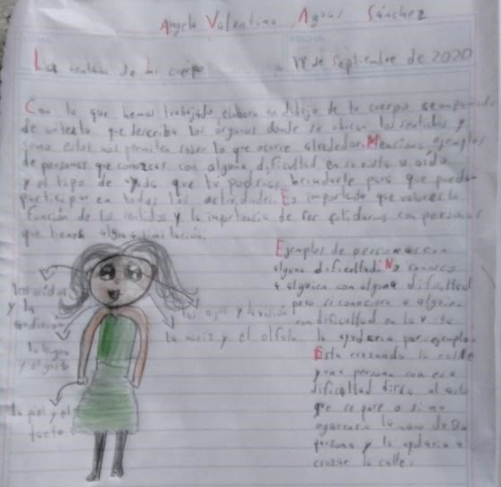 Angela Valentina Aguas Sánchez
Los sentidos de mi cuerpo
18 de Septiembre de 2020
Con lo que hemos trabajado elabora un dibujo de tu cuerpo
de un texto que describa los órganos donde se ubican los sentidos y
como estos nos permiten saber lo que ocurre alrededor. Menciona ejemplos
de personas que conozcas con alguna dificultad en su vista u oído
y el tipo de ayuda que tu podrías brindarle para que puedan
participar en todas las actividades. Es importante que valores la
función de los sentidos y la importancia de ser solidarios con personas
que tienen alguna limitación.
Ejemplos de personas con
alguna dificultad: No conozco
a alguien con alguna dificultad
pero si conociera a alguien
con dificultad en la vista
la ayudaria por ejemplo
Esta cruzando la calle
y una persona con esa
dificultad diria al auto
que se pare o si no
agarraria la mano de la
persona y la ayudaria a
cruzar la calle.
Los oídos
y la
audicion
los ojos y la visión
la nariz y el olfato
la lengua
y el gusto
la piel y el
tacto